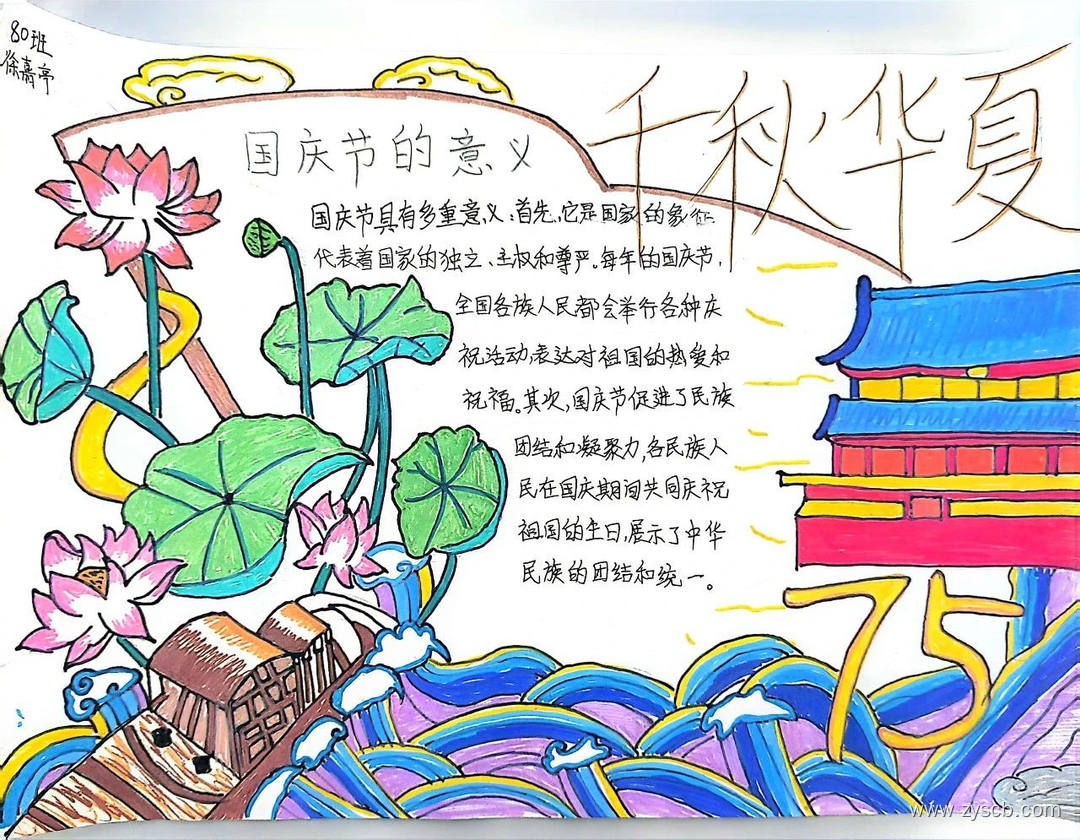 80班
徐嘉亭
千秋华夏
国庆节的意义
国庆节具有多重意义:首先,它是国家的象征
代表着国家的独立、主权和尊严。每年的国庆节,
全国各族人民都会举行各种庆
祝活动,表达对祖国的热爱和
祝福。其次,国庆节促进了民族
团结和凝聚力,各民族人
民在国庆期间共同庆祝
祖国的生日,展示了中华
民族的团结和统一。
75
www.zyscb.com